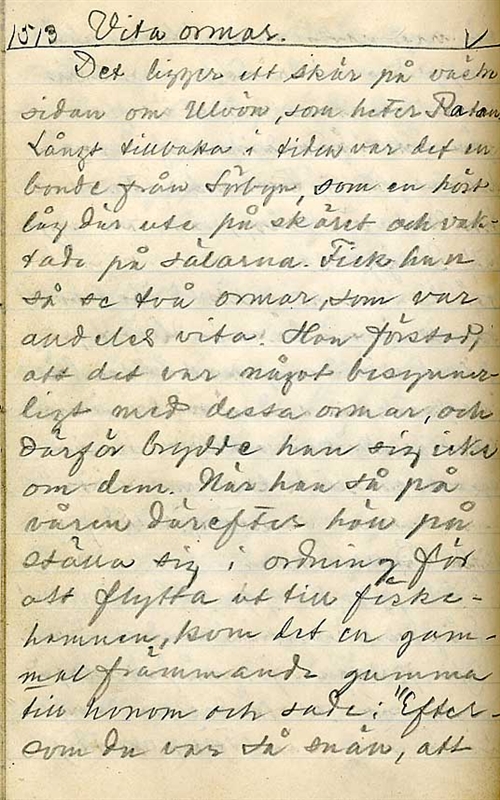 1513 Vita ormar. V
Det ligger ett skär på västra
sidan om Ulvön, som heter Ratan
Långt tillbaka i tiden var det en
bonde från Sörbyn, som en höst
låg där ute på skäret och vak-
tade på sälarna. Fick han
så se två ormar, som var
andeles vita. Han förstod,
att det var något besynner-
ligt med dessa ormar, och
därför brydde han sig icke
om dem. När han så på
våren därefter höll på
ställa sig i ordning för
att flytta ut till fiske-
hamnen, kom det en gam-
mal främmande gumma
till honom och sade: "Efter-
som du var så snäll, att